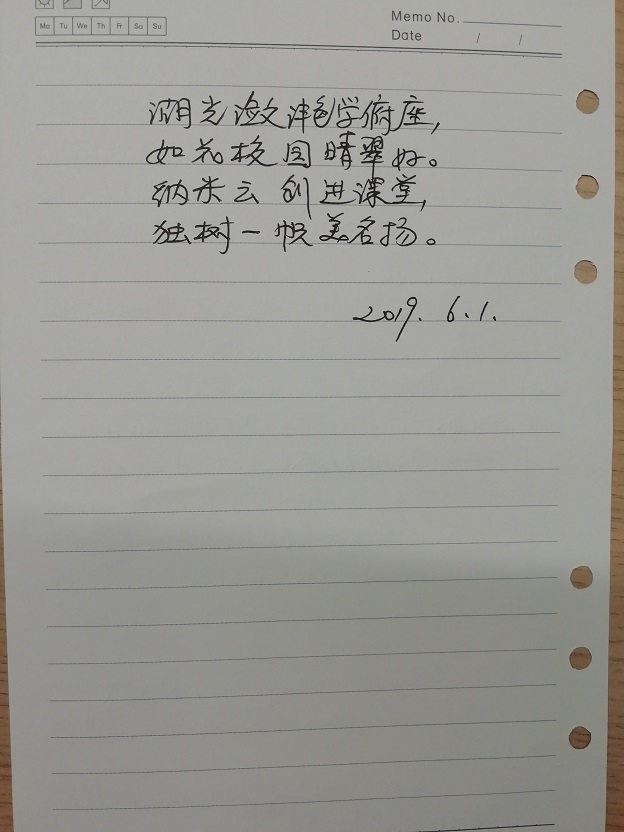 Mo Tu We Th Fr Sa Su
Memo No.
Date / /
湖光潋滟学府座,
如花校园晴翠好。
纳米云创进课堂,
独树一帜美名扬。
2019. 6.1.